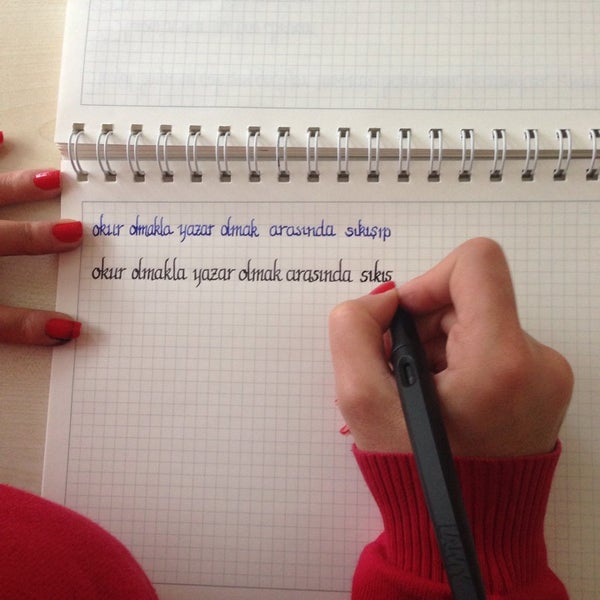 okur olmakla yazar olmak arasında sıkışıp
okur olmakla yazar olmak arasında sıkış
LAMY